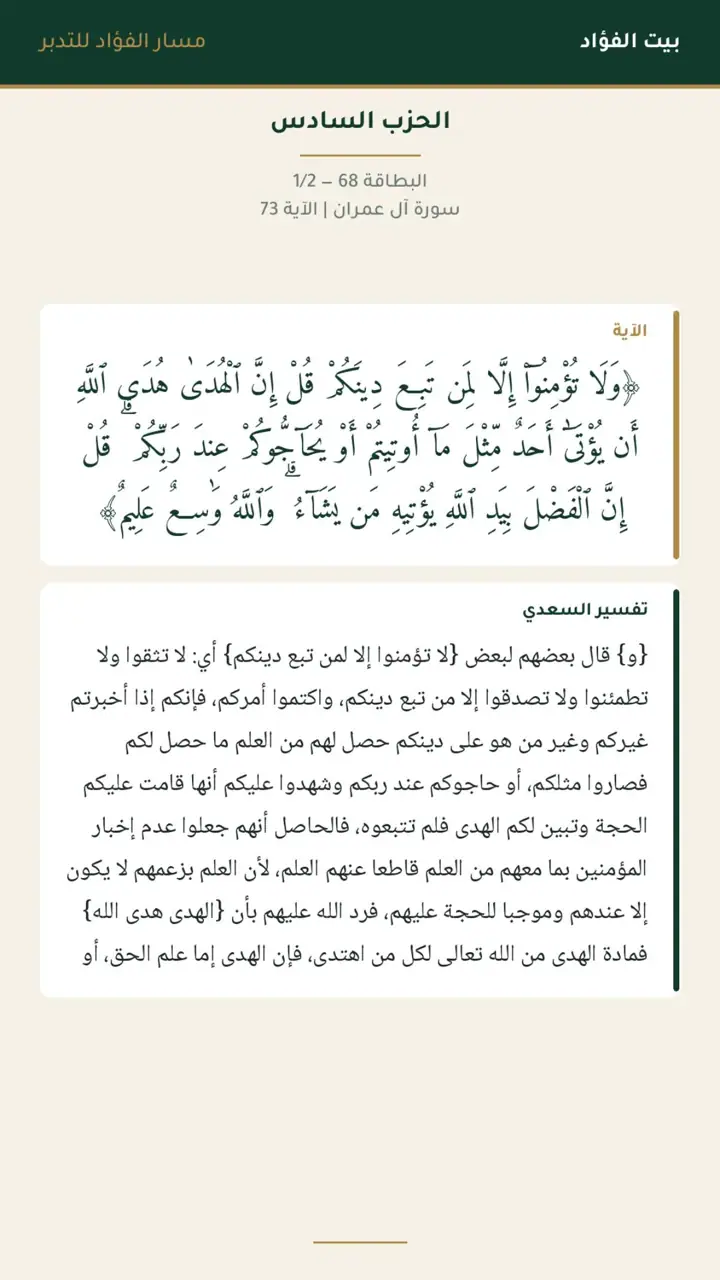 بيت الفؤاد
مسار الفؤاد للتدبر
الحزب السادس
البطاقة 68 – 1/2
سورة آل عمران | الآية 73
الآية
﴿وَلَا تُؤْمِنُوٓا۟ إِلَّا لِمَن تَبِعَ دِينَكُمْ قُلْ إِنَّ ٱلْهُدَىٰ هُدَى ٱللَّهِ
أَن يُؤْتَىٰٓ أَحَدٌ مِّثْلَ مَآ أُوتِيتُمْ أَوْ يُحَآجُّوكُمْ عِندَ رَبِّكُمْ ۗ قُلْ
إِنَّ ٱلْفَضْلَ بِيَدِ ٱللَّهِ يُؤْتِيهِ مَن يَشَآءُ ۗ وَٱللَّهُ وَٰسِعٌ عَلِيمٌ﴾
تفسير السعدي
{و} قال بعضهم لبعض {لا تؤمنوا إلا لمن تبع دينكم} أي: لا تثقوا ولا
تطمئنوا ولا تصدقوا إلا من تبع دينكم، واكتموا أمركم، فإنكم إذا أخبرتم
غيركم وغير من هو على دينكم حصل لهم من العلم ما حصل لكم
فصاروا مثلكم، أو حاجوكم عند ربكم وشهدوا عليكم أنها قامت عليكم
الحجة وتبين لكم الهدى فلم تتبعوه، فالحاصل أنهم جعلوا عدم إخبار
المؤمنين بما معهم من العلم قاطعا عنهم العلم، لأن العلم بزعمهم لا يكون
إلا عندهم وموجبا للحجة عليهم، فرد الله عليهم بأن {الهدى هدى الله}
فمادة الهدى من الله تعالى لكل من اهتدى، فإن الهدى إما علم الحق، أو